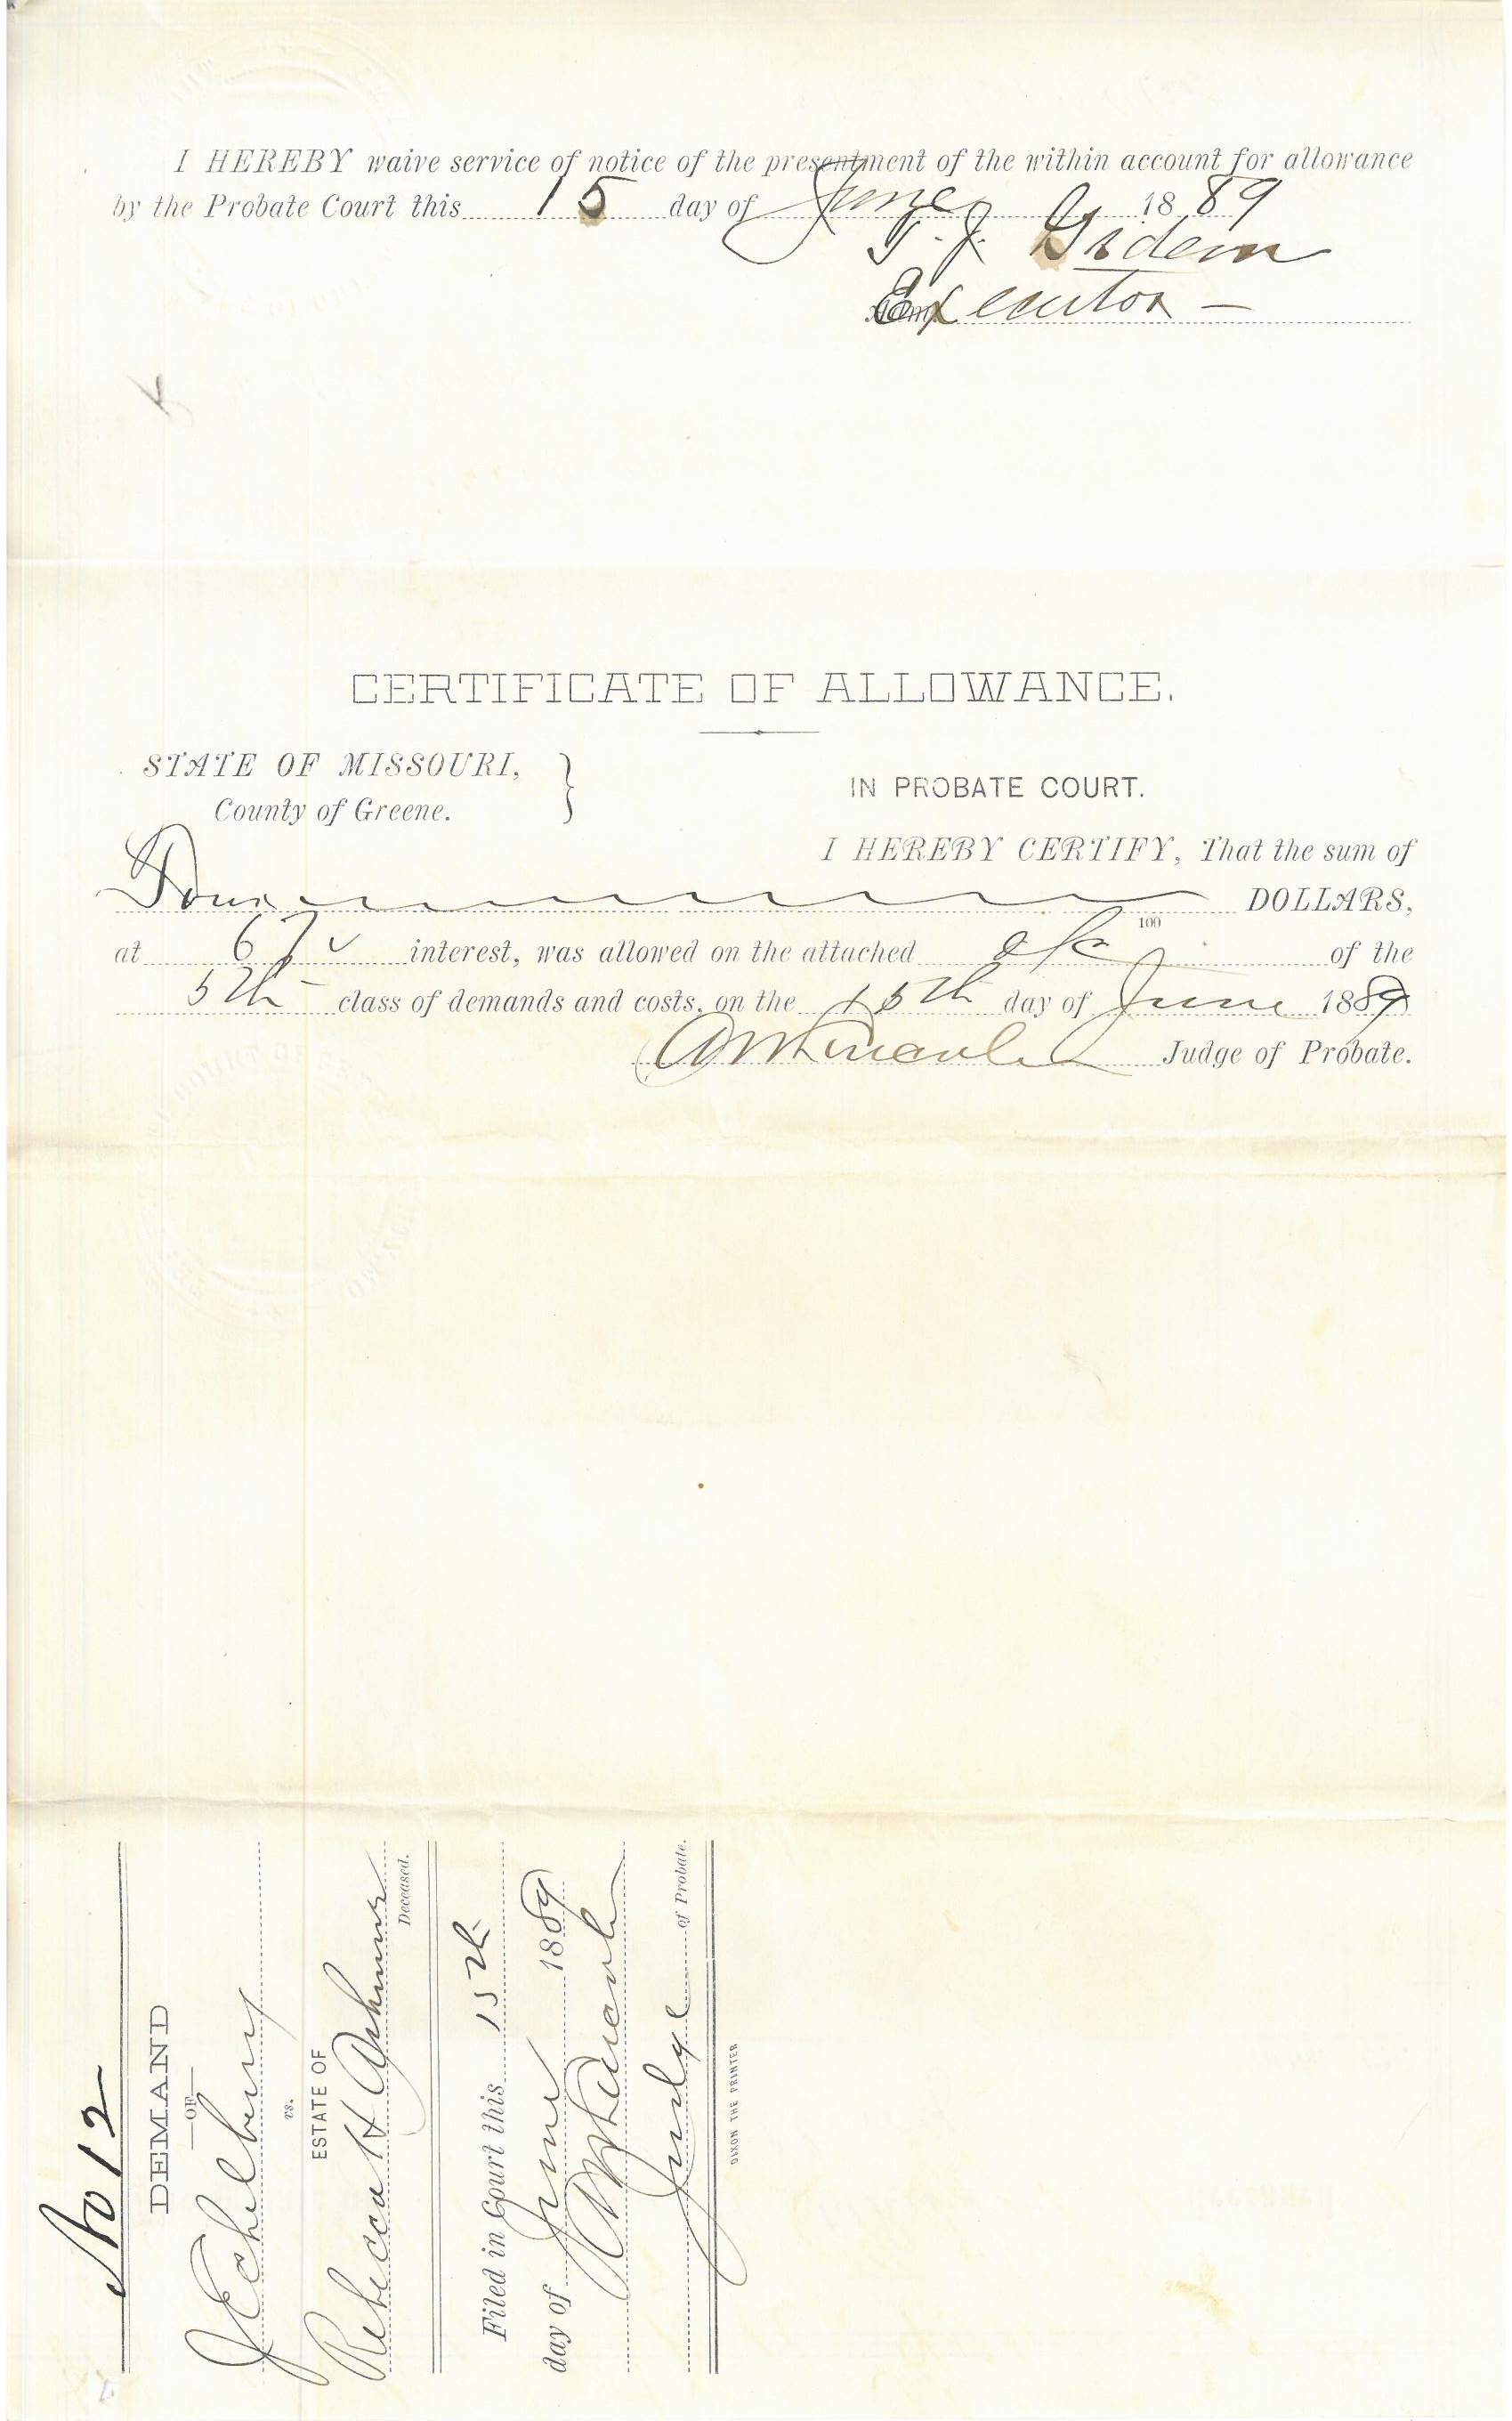 I HEREBY waive service of notice of the presentment of the within account for allowance
by the Probate Court this 15 day of June 1889
T. J. Gideon
Executor —
CERTIFICATE OF ALLOWANCE.
STATE OF MISSOURI,
County of Greene.
IN PROBATE COURT.
I HEREBY CERTIFY, That the sum of
Four DOLLARS,
100
at 6 % interest, was allowed on the attached a/c of the
5th class of demands and costs, on the 15th day of June 1889
Judge of Probate.
No 12
DEMAND
—OF—
J Echelberry
vs.
ESTATE OF
Rebecca H
Deceased.
Filed in Court this 15th
day of June 1889
Judge of Probate.
DIXON THE PRINTER